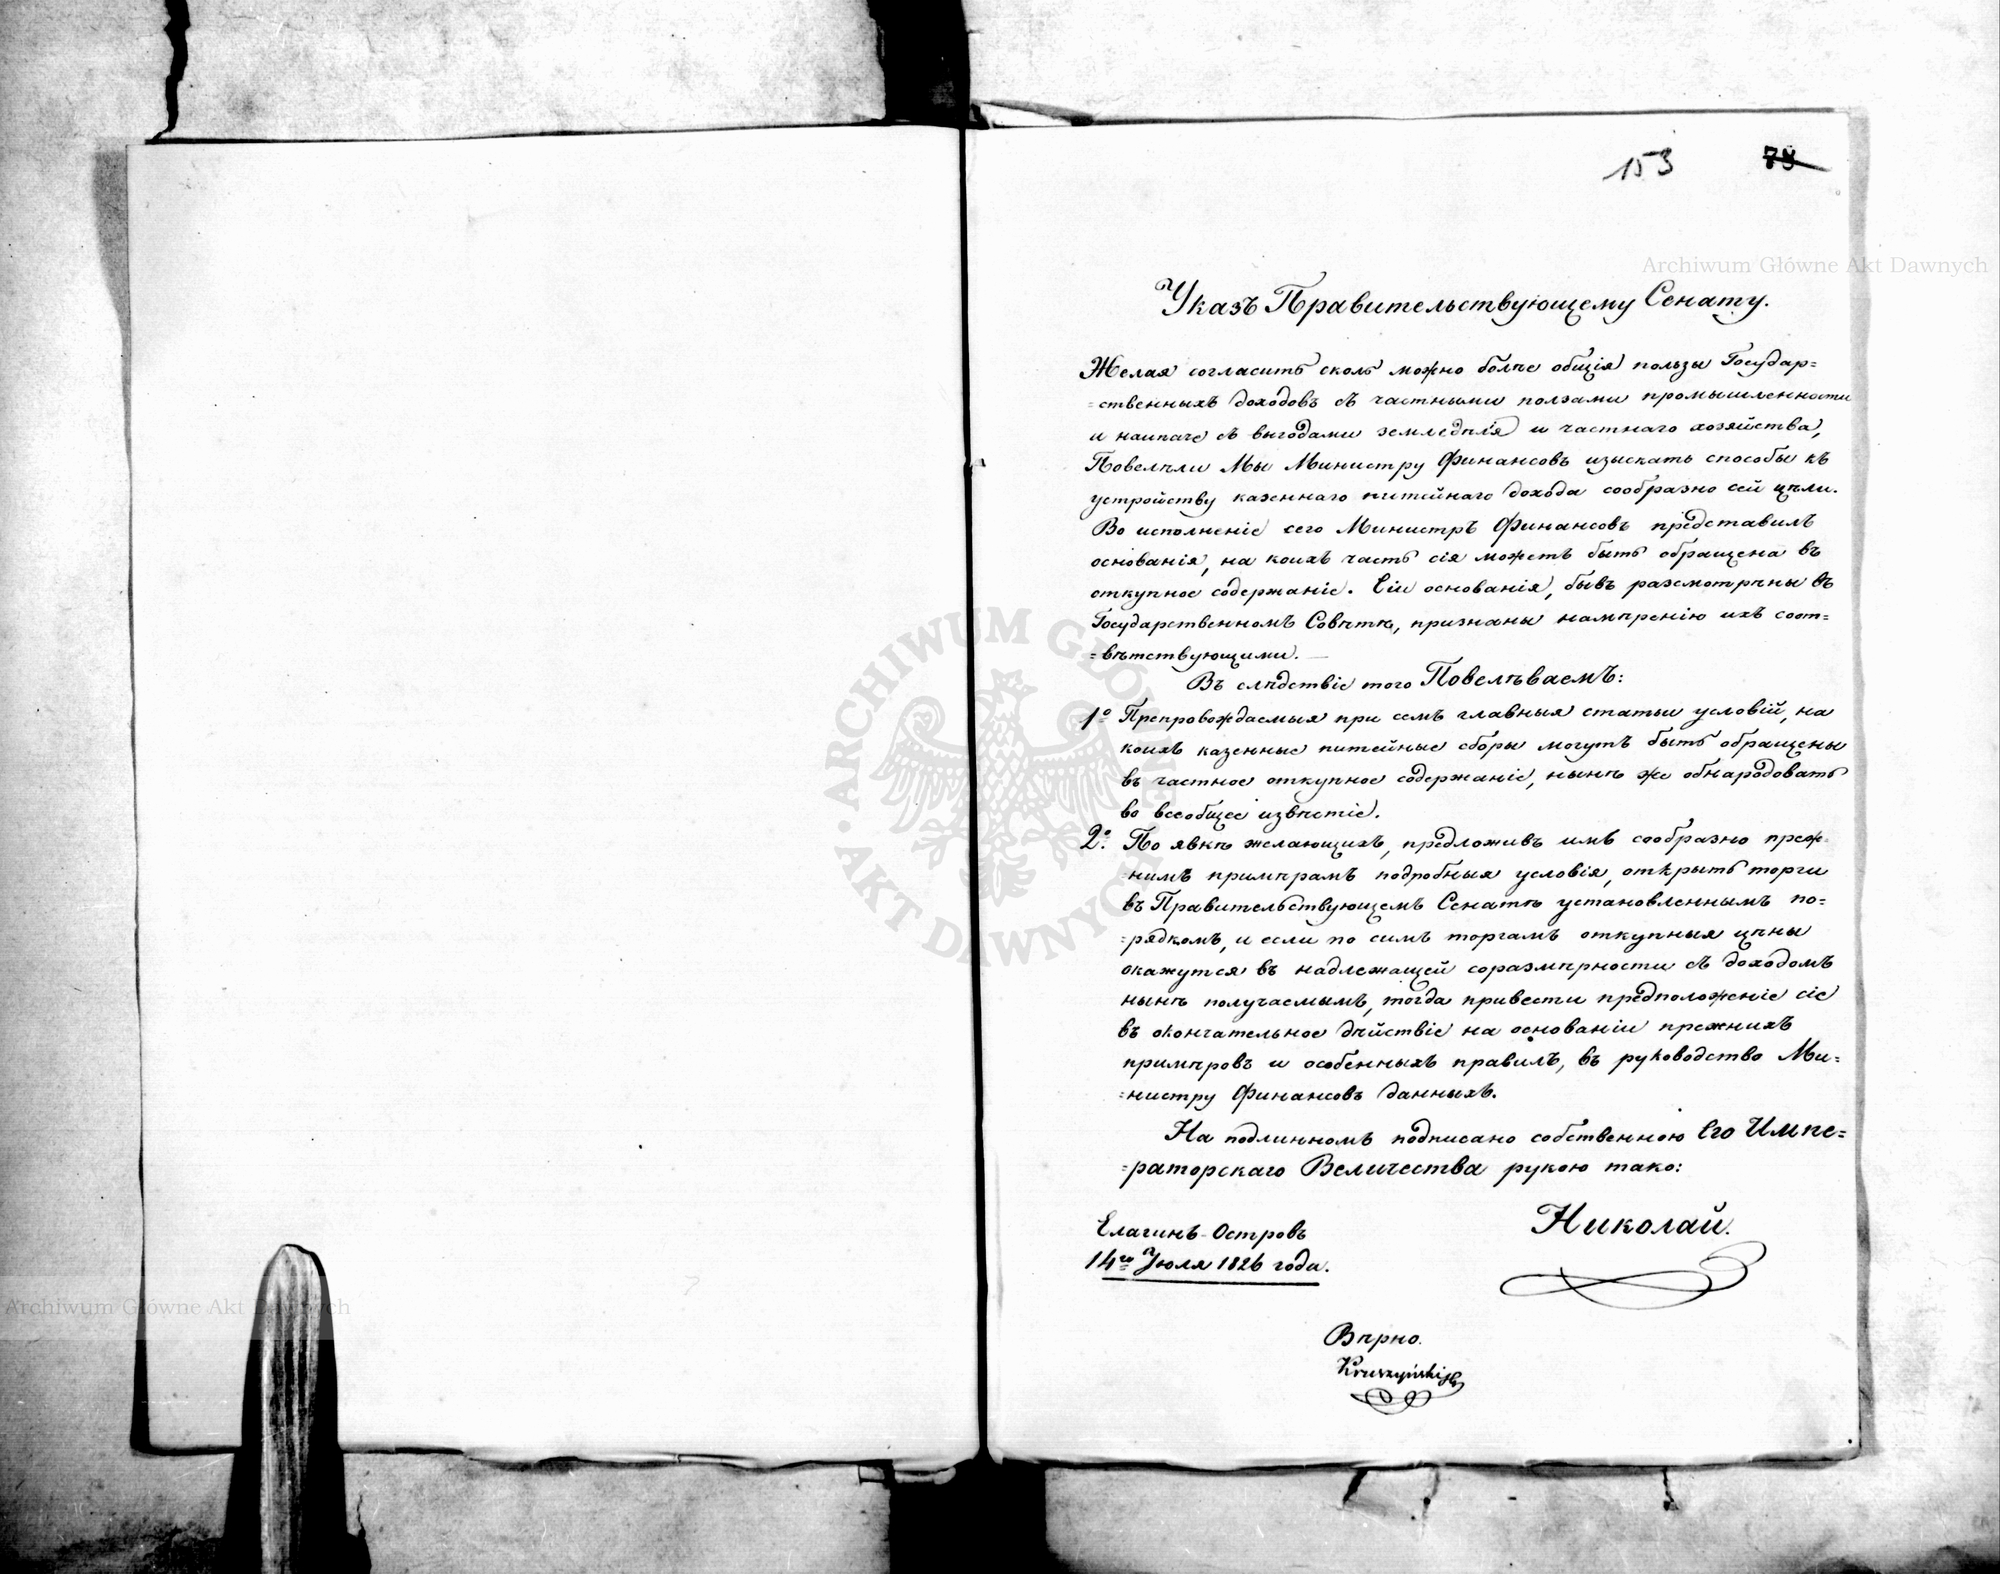 153 79
Archiwum Główne Akt Dawnych
Указъ Правительствующему Сенату.
Желая согласить сколь можно болѣе общія пользы Государ=
=ственныхъ доходовъ съ частными ползами промышленности
и наипаче съ выгодами земледѣлія и частнаго хозяйства,
Повелѣли Мы Министру Финансовъ изыскать способы къ
устройству казеннаго питейнаго дохода сообразно сей цѣли.
Во исполненіе сего Министръ Финансовъ представилъ
основанія, на коихъ часть сія можетъ быть обращена въ
откупное содержаніе. Сіи основанія, бывъ разсмотрѣны въ
Государственномъ Совѣтѣ, признаны намѣренію ихъ соот=
=вѣтствующими. —
Въ слѣдствіе того Повелѣваемъ:
1º Препровождаемыя при семъ главныя статьи условій, на
коихъ казенные питейные сборы могутъ быть обращены
въ частное откупное содержаніе, нынѣ же обнародовать
во всеобщее извѣстіе.
2º. По явкѣ желающихъ, предложивъ имъ сообразно преж=
=нимъ примѣрамъ подробныя условія, открыть торги
въ Правительствующемъ Сенатѣ установленнымъ по=
=рядкомъ, и если по симъ торгамъ откупныя цѣны
окажутся въ надлежащей соразмѣрности съ доходомъ
нынѣ получаемымъ, тогда привести предположеніе сіе
въ окончательное дѣйствіе на основаніи прежнихъ
примѣровъ и особенныхъ правилъ, въ руководство Ми=
=нистру Финансовъ данныхъ.
На подлинномъ подписано собственною Его Импе=
=раторскаго Величества рукою тако:
Николай.
Елагинъ-Островъ
14го Іюля 1826 года.
Archiwum Główne Akt Dawnych
Вѣрно.
Kruszyński
ARCHIWUM GŁÓWNE • AKT DAWNYCH •